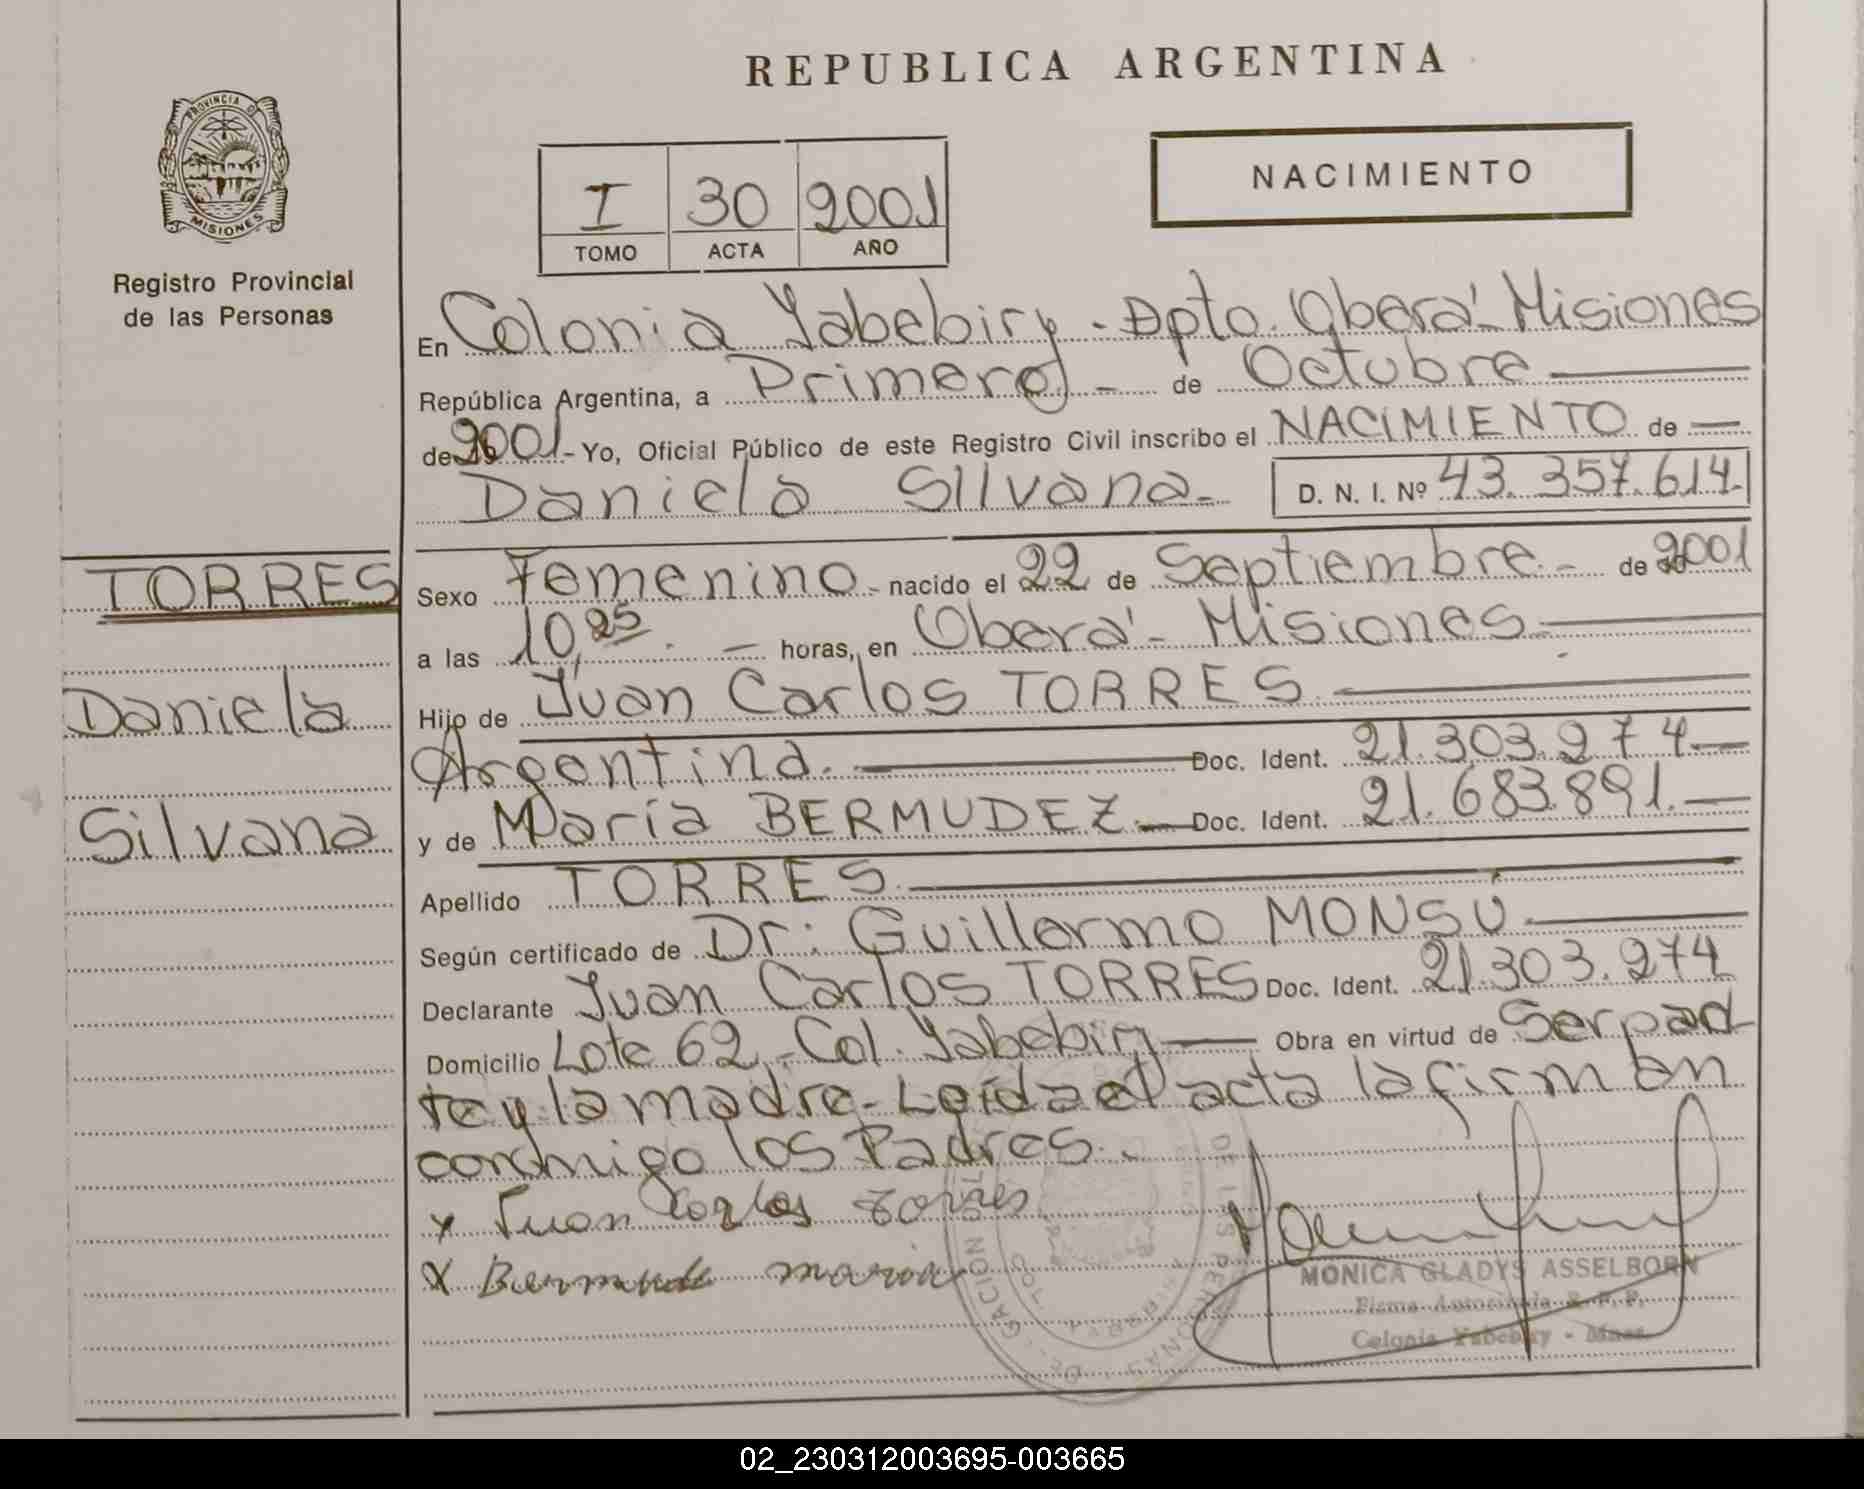 REPUBLICA ARGENTINA
PROVINCIA DE
MISIONES
Registro Provincial
de las Personas
I 30 2001
TOMO ACTA AÑO
NACIMIENTO
En Colonia Yabebiry - Dpto. Oberá - Misiones
República Argentina, a Primero - de Octubre
de 2001 - Yo, Oficial Público de este Registro Civil inscribo el NACIMIENTO de —
Daniela Silvana - D. N. I. Nº 43.357.614.
TORRES
Daniela
Silvana
Sexo Femenino - nacido el 22 de Septiembre - de 2001
a las 10,25 — horas, en Oberá - Misiones
Hijo de Juan Carlos TORRES
Argentina. Doc. Ident. 21.303.274 —
y de María BERMUDEZ — Doc. Ident. 21.683.891. —
Apellido TORRES
Según certificado de Dr: Guillermo MONSU
Declarante Juan Carlos TORRES Doc. Ident. 21.303.274
Domicilio Lote 62 - Col. Yabebiry — Obra en virtud de Ser pad
re y la madre - Leída el acta la firman
conmigo los Padres.
x Juan Carlos Torres
x Bermude maria
MONICA GLADYS ASSELBORN
Firma Autorizada R. P. P.
Colonia Yabebiry - Mnes.
02_230312003695-003665